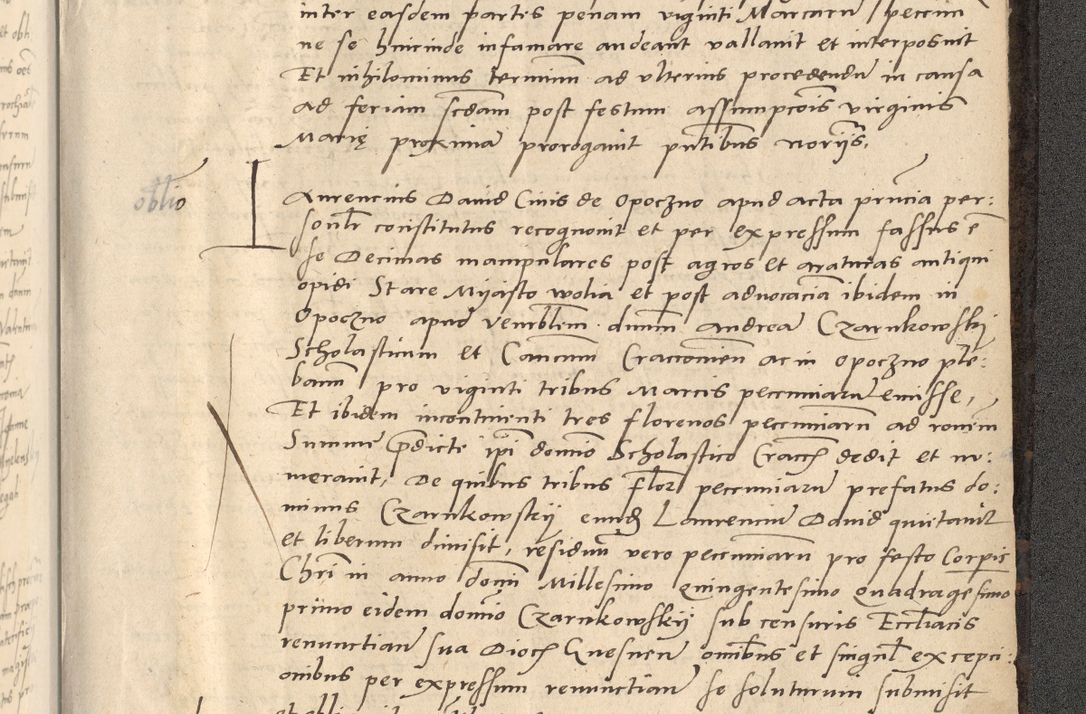 inter easdem partes penam viginti Marcarum peccuni
ne se hincinde infamare audeant vallavit et interposuit
Et nihilominus terminum ad ulterius procedendum in causa
ad feriam scdam post festum assumpcois virginis
Marię proxima prorogavit pntibus noriis.
oblio
Laurencius David Civis de Opoczno apud acta pruncia per:
sonlr constitutus recognovit et per expressum fassus e
se Decimas manipulares post agros et araturas antiqui
opidi Stare Myasto wolia et post advocacia ibidem in
Opoczno apud venrblem dnum andrea Czarnkowskj
Scholasticum et Cancum Cracconien ac in Opoczno ple:
banu pro viginti tribus Marcis pecuniaru emisse,
Et ibidem incontinenti tres florenos pecuniaru ad ronem
Summe pdicte ipi domio Scholastico Cracc dedit et nu:
meravit, De quibus tribus flor pecuniaru prefatus do:
minus Czarnkowskij eund Laurenciu David quitavit
et liberum dimisit, residuu vero peccuniaru pro festo Corpis
Chri in anno domi Millesimo Quingentesimo Quadragesimo
primo eidem domio Czarnkowskij sub censuris Eccliacis
renunctian sua Dioc Gnesnen omibus et singul excepci:
onibus per expressum renunctian se soluturum submisit